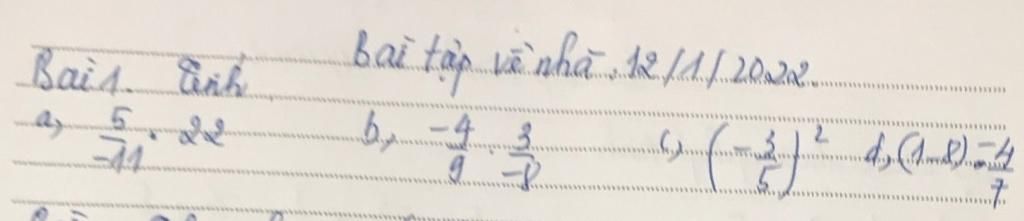 Bài tập về nhà. 12/1/2022.
Bài 1. Tính
a, 5/-11 . 22 b, -4/9 . 3/-8 c, (-3/5)² d, (1-8) . -4/7